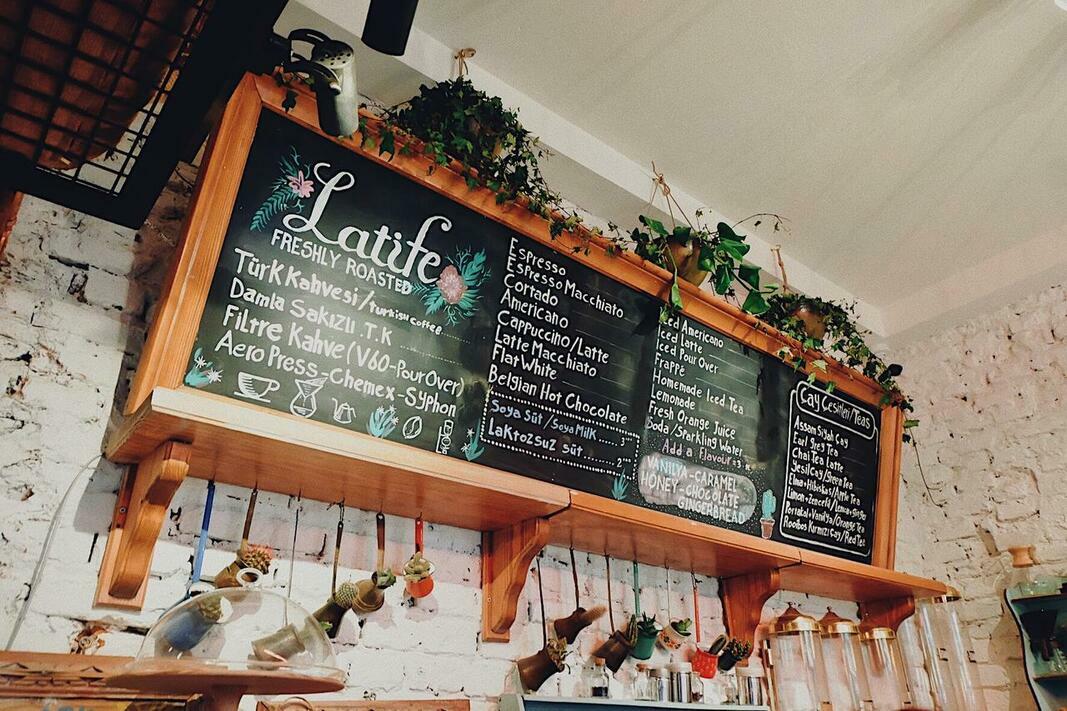 Latife
FRESHLY ROASTED
Türk Kahvesi/turkish coffee
Damla Sakızlı T.K
Filtre Kahve (V60-PourOver)
Aero Press-Chemex-Syphon
Espresso
Espresso Macchiato
Cortado
Americano
Cappuccino/Latte
Latte Macchiato
Flat White
Belgian Hot Chocolate
Soya Süt/Soya Milk
Laktozsuz süt
Iced Americano
Iced Latte
Iced Pour Over
Frappé
Homemade Iced Tea
Lemonade
Fresh Orange Juice
Soda/Sparkling Water
Add a Flavour
VANILYA-CARAMEL
HONEY-CHOCOLATE
GINGERBREAD
Çay Çeşitleri/Teas
Assam Siyah Çay
Earl Grey Tea
Chai Tea Latte
Yeşil Çay/Green Tea
Elma+Hibiskus/Apple Tea
Limon+Zencefil/Lemon+Ginger
Portakal+Vanilya/Orange Tea
Rooibos Kırmızı Çay/Red Tea